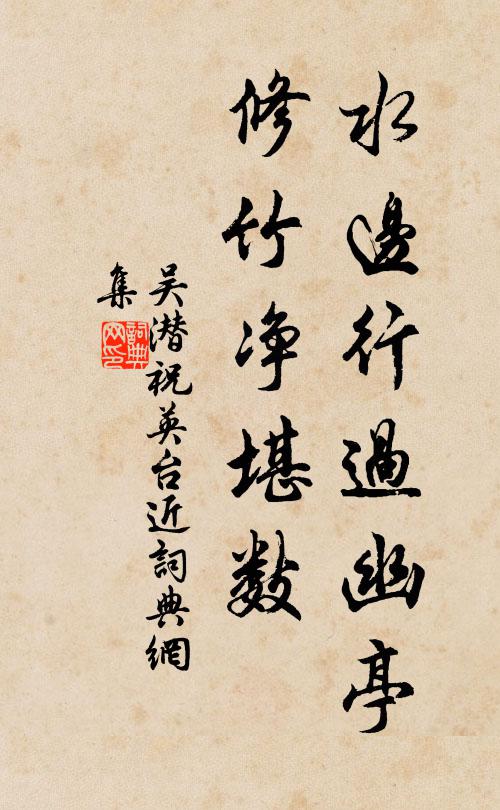 水邊行過幽亭
修竹净堪数
吴潜祝英台近詞典網
集
詞典
网印